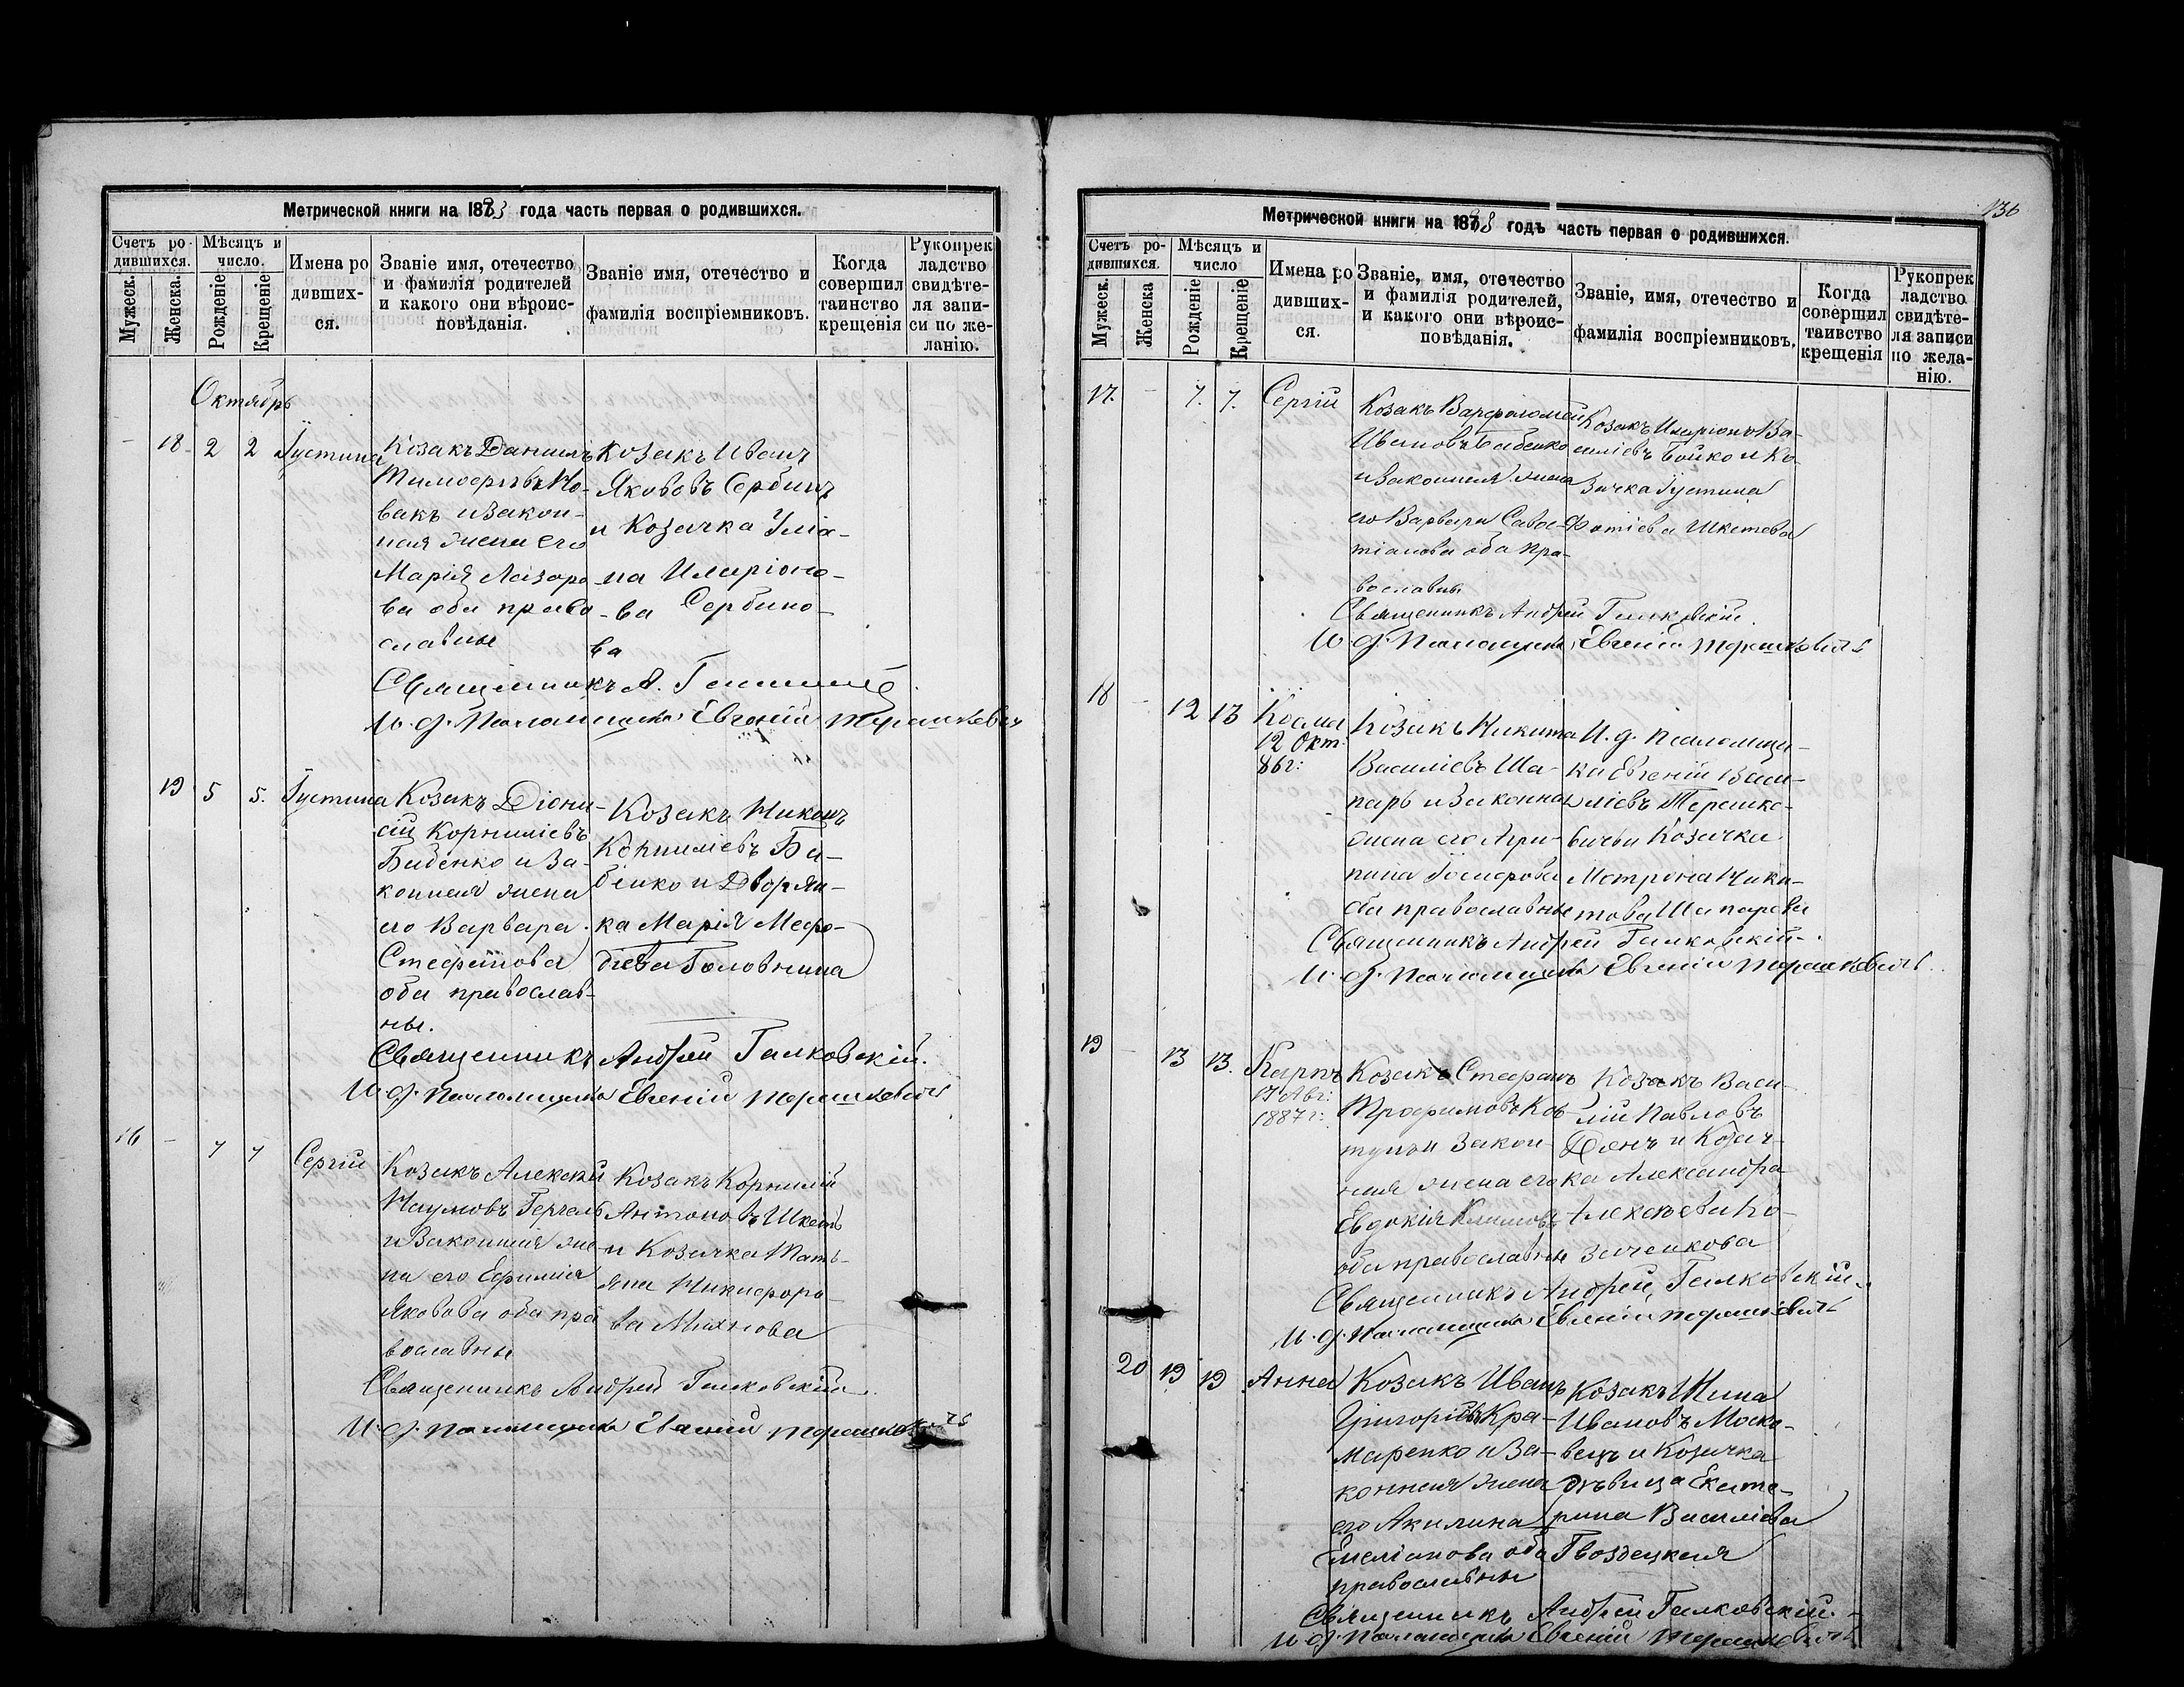 Метрической книги на 1883 года часть первая о родившихся.
Счетъ ро-
дившихся.
Мужеск.
Женска.
Мѣсяцъ и
число.
Рожденіе
Крещеніе
Имена ро
дивших-
ся.
Званіе имя, отечество
и фамилія родителей
и какого они вѣроис-
повѣданія.
Званіе имя, отечество и
фамилія воспріемниковъ.
Когда
совершил
таинство
крещенія
Рукопрек
ладство
свидѣте-
ля запи-
си по же-
ланію.
Октябрь
- 18 2 2 Іустина
Козакъ Даниилъ
Тимоѳеевъ Но-
вакъ и закон-
ная жена его
Марія Лазаро
ва оба право
славные
Козакъ Иванъ
Якововъ Сербинъ
и Козачка Улiа-
на Иларіоно-
ва Сербино-
ва
Священникъ А.
И. д. Псаломщика Евгеній Терешкевич
19 5 5. Іустина
Козакъ Діони-
сій Корниліевъ
Бабенко и за-
конная жена
его Варвара
Стефанова
оба православ-
ны.
Козакъ Никонъ
Корниліевъ Ба-
бенко и Дворян-
ка Марія Мефо-
діева Головнина
Священникъ Андрей Галковскій.
И. д. Псаломщика Евгеній Терешкевичъ
16 - 7 7 Сергій
Козакъ Алексѣй
Наумовъ
и законная же-
на его Ефимія
Яковова оба пра
вославны
Козакъ Корнилій
Антоновъ
и Козачка Тать-
яна Никифоро-
ва Михнова
Священникъ Андрей Галковскій.
И. д. Псаломщика Евгеній Терешкевичъ
136
Метрической книги на 1888 годъ часть первая о родившихся.
Счетъ ро-
дившихся.
Мужеск.
Женска
Мѣсяцъ и
число
Рожденіе
Крещеніе
Имена ро
дивших-
ся.
Званіе, имя, отечество
и фамилія родителей,
и какого они вѣроис-
повѣданія.
Званіе, имя, отечество и
фамилія воспріемниковъ.
Когда
совершил
таинство
крещенія
Рукопрек
ладство
свидѣте-
ля записи
по жела-
нію.
17. - 7. 7. Сергій
Козакъ Варфоломей
Ивановъ Бабенко
и законная жена
его Варвара Савос-
тіанова оба пра-
вославны
Козакъ Иларіонъ Ва-
силіевъ Бойко и Ко-
зачка Іустина
Фотіева Шкетева
Священникъ Андрей Галковскій.
И. д. Псаломщика Евгеній Терешкевичъ
18 - 12 13 Косма
12 Окт:
86г:
Козакъ Никита
Василіевъ Ша-
парь и законная
жена его Агри-
пина Іосифова
оба православные
И. д. псаломщи-
ка Евгеній Васи-
ліевъ Терешке-
вичъ и Козачка
Мотрона Ники-
това Шапарева
Священникъ Андрей Галковскій.
И. д. Псаломщика Евгеній Терешкевичъ
19 - 13 13. Карпъ
17 Авг:
1887г:
Козакъ Стефанъ
Трофимовъ Ков-
тунъ и закон-
ная жена его
Евдокія Климова
оба православны
Козакъ Васи-
лій Павловъ
и Козач-
ка Александра
Алексѣева Ко-
заченкова
Священникъ Андрей Галковскій.
И. д. Псаломщика Евгеній Терешкевичъ
20 19 19 Анна
Козакъ Иванъ
Григоріевъ Кра-
маренко и за-
конная жена
его Акилина
Емеліанова оба
православны
Козакъ
Ивановъ Моск-
вецъ и Козачка
дѣвица Екате-
рина Василіева
Гвоздецкая
Священникъ Андрей Галковскій.
И. д. Псаломщика Евгеній Терешкевичъ